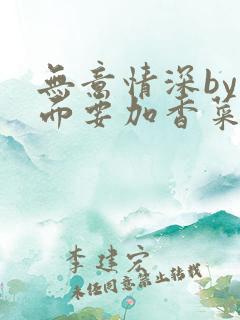 無意情深by
而要加香菜
李建宏
未经同意禁止转载